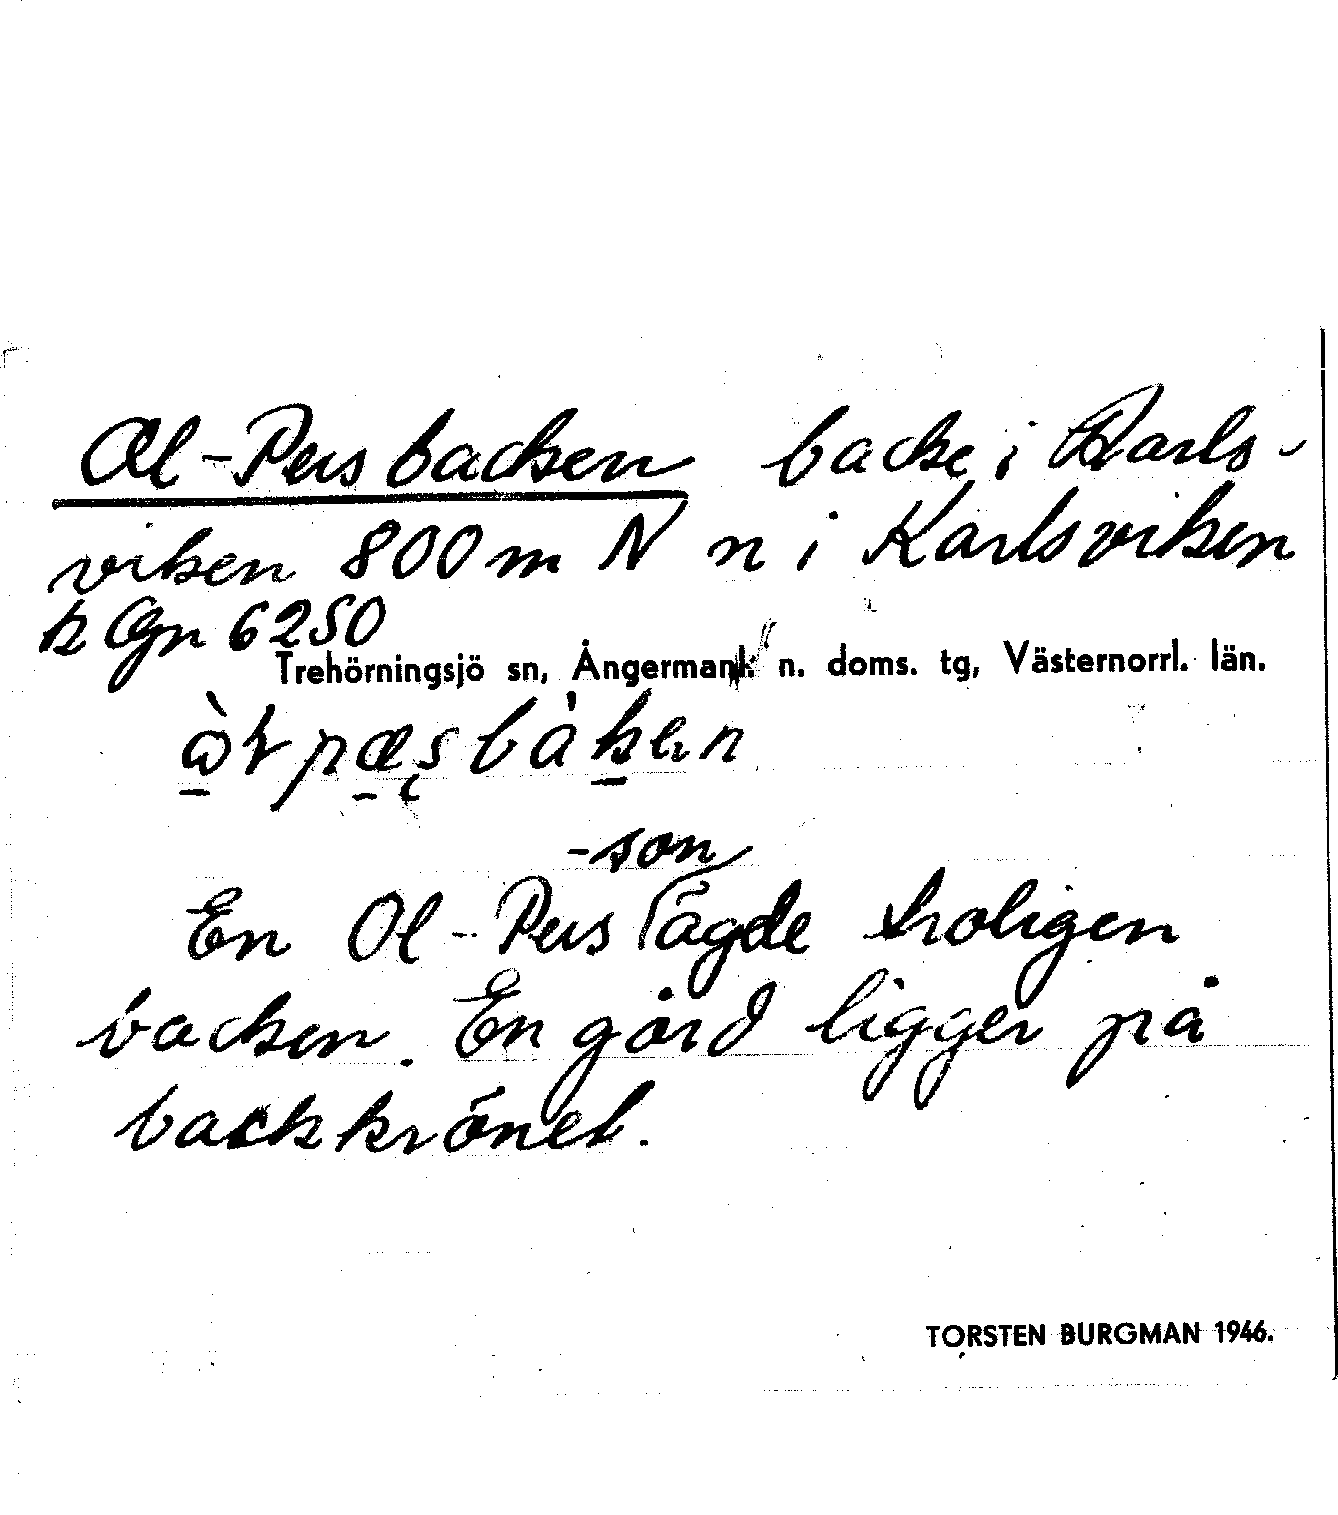 Ol-Persbacken backe i Karls-
viken 800 m N n i Karlsviken
k Ögn 6250
Trehörningsjö sn, Ångermanl. n. doms. tg, Västernorrl. län.
-son
En Ol-Pers ägde troligen
backen. En gård ligger på
backkrönet.
TORSTEN BURGMAN 1946.